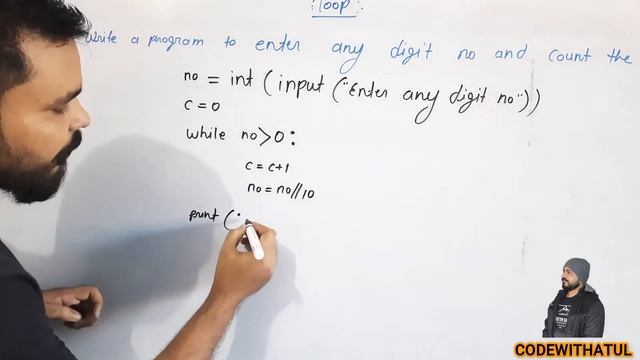 loop
Write a program to enter any digit no and count the
no = int (input ("Enter any digit no"))
c = 0
while no>0:
c = c+1
no = no//10
print (
CODEWITHATUL